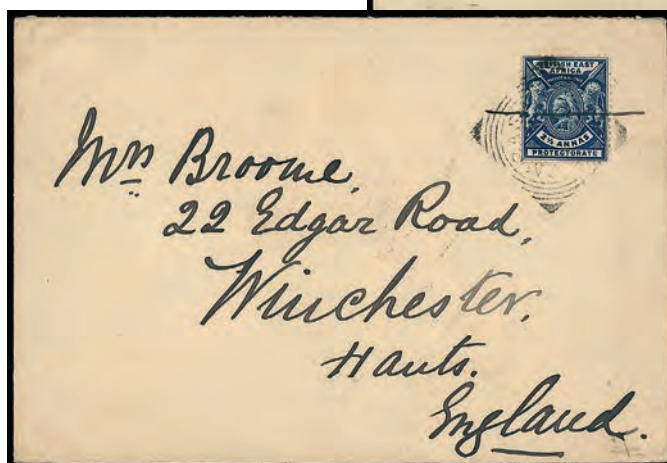 BRITISH EAST
AFRICA
2½ ANNAS
PROTECTORATE
Mrs Broome,
22 Edgar Road,
Winchester,
Hants.
England.